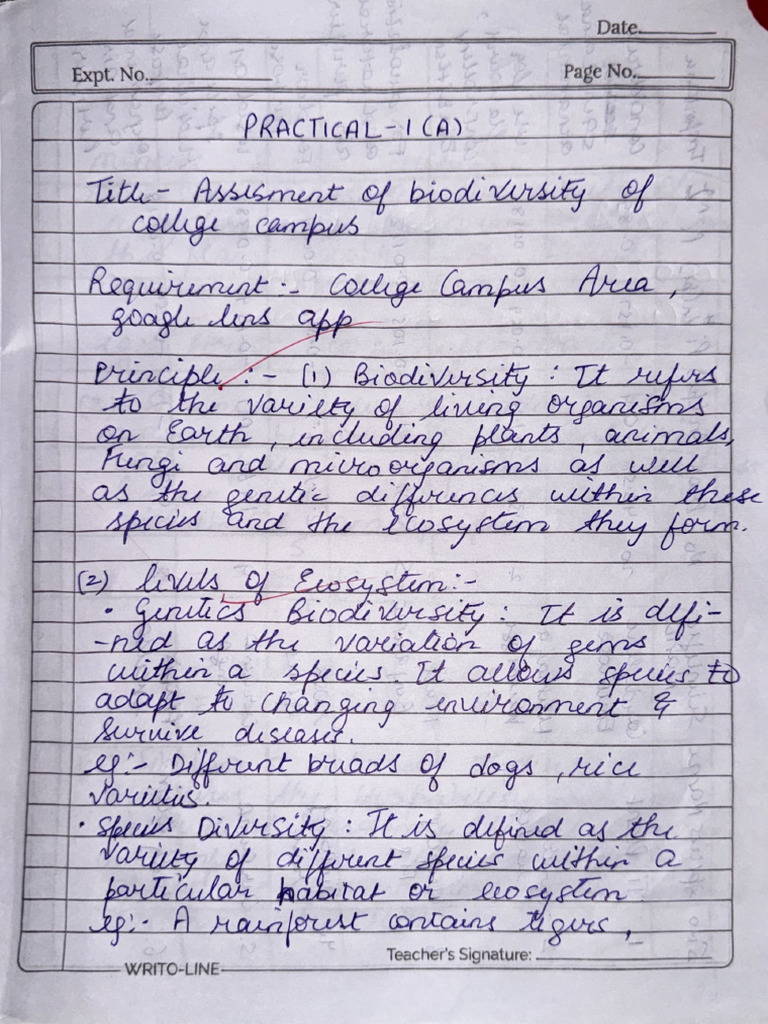 Date.
Expt. No.
Page No.
PRACTICAL - 1 (A)
Title - Assesment of biodiversity of
college campus
Requirement :- College Campus Area,
google lens app
Principle :- (1) Biodiversity : It refers
to the variety of living organisms
on Earth, including plants, animals,
Fungi and microorganisms as well
as the genetic differences within these
species and the ecosystem they form.
(2) levels of Ecosystem :-
• Genetics Biodiversity : It is defi-
-ned as the variation of gens
within a species It allows species to
adapt to changing environment &
Survive diseases.
eg :- Different breads of dogs, rice
varieties.
• Species Diversity : It is defined as the
variety of different species within a
particular habitat or ecosystem
eg :- A rainforest contains tigers,
Teacher's Signature:
WRITO-LINE